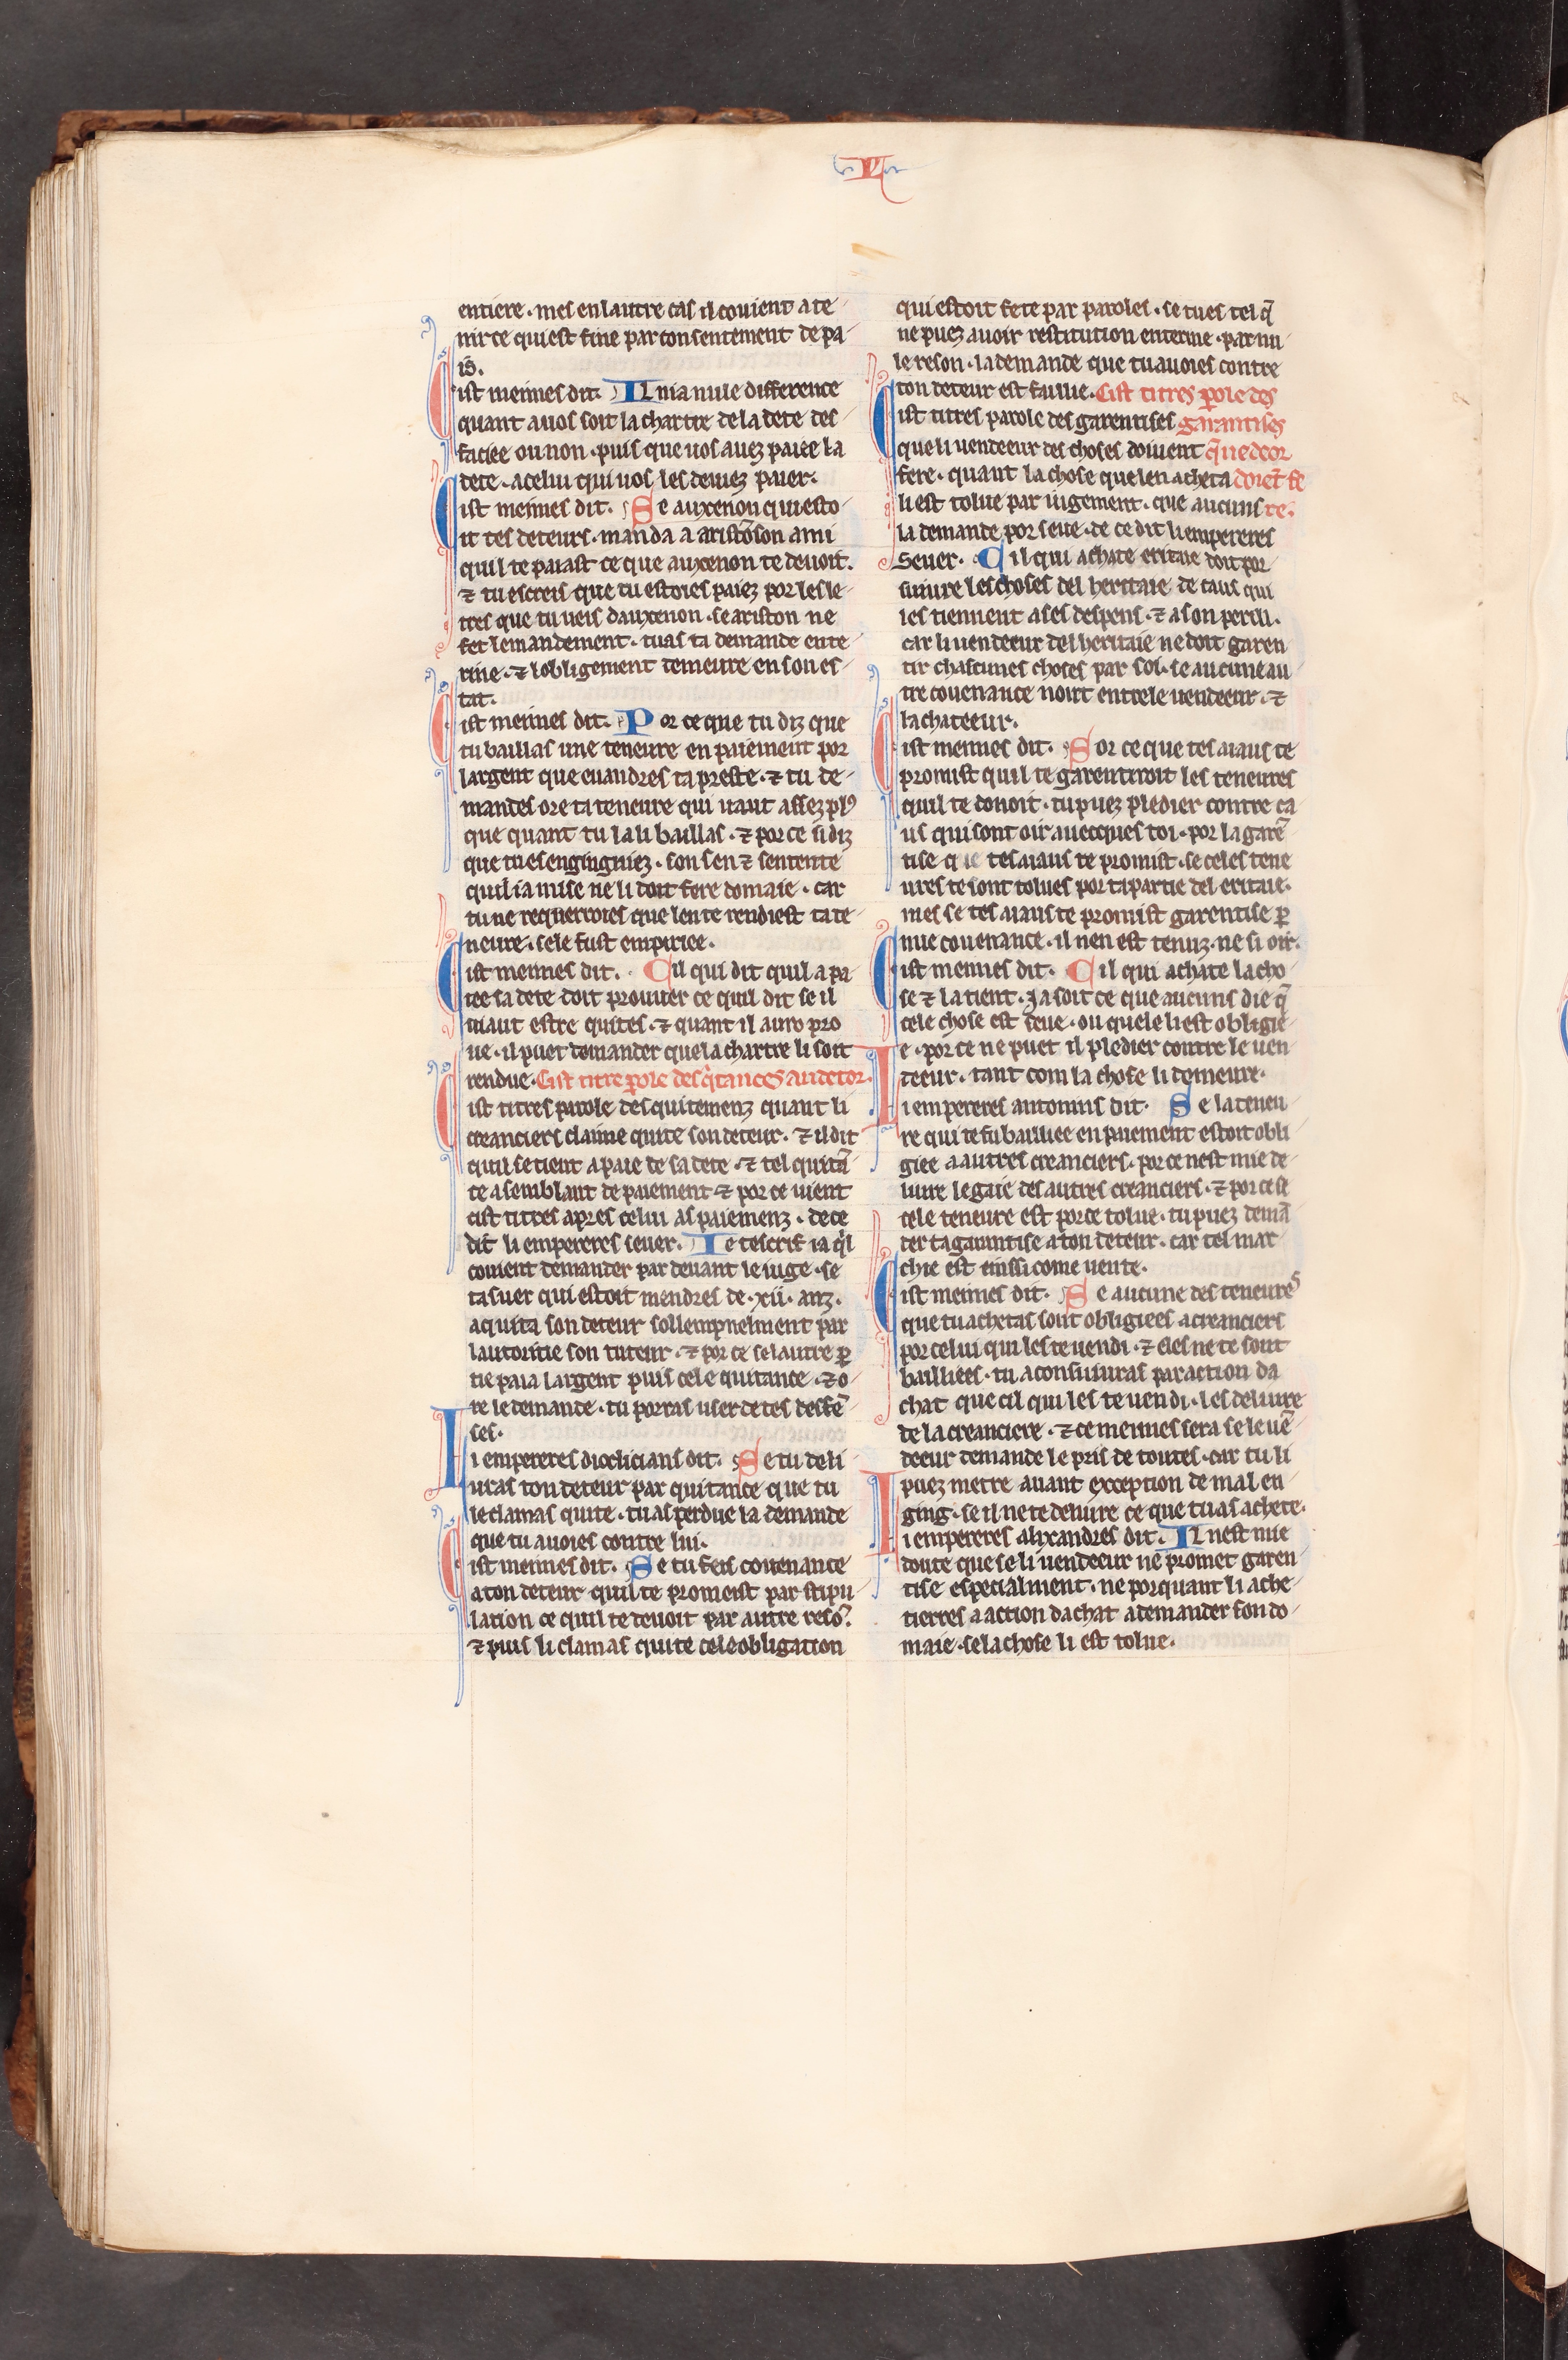 entiere · mes en lautre cas il couient a te
nir ce qui est fine par consentement de pa
is̄.
Cist meimes dit. Il nia nule difference
quant a uos soit la chartre de la dete des
faciee ou non · puis que uos auez paiee la
dete · a celui qui uos les deuiez paier.
Cist meimes dit. Se auxenon qui esto
it tes deteurs · manda a aristō son ami
quil te paiast ce que auxenon te deuoit.
⁊ tu escreis que tu estoies paiez por les le
tres que tu ueis dauxenon · se ariston ne
fet le mandement · tu as ta demande ente
rine · ⁊ lobligement demeure en son es
tat.
Cist meimes dit. Por ce que tu diz que
tu baillas une teneure en paiement por
largent que euandres ta preste · ⁊ tu de
mandes ore ta teneure qui uaut assez plꝰ
que quant tu la li baillas · ⁊ por ce si diz
que tu es engingniez · son sen ⁊ sentente
quil ia mise ne li doit fere domaie · car
tu ne requerroies que len te rendiest ta te
neure · sele fust empiriee.
Cist meimes dit. Cil qui dit quil a pa
iee sa dete doit prouuer ce quil dit se il
uiaut estre quites · ⁊ quant il aura pro
ue · il puet demander que la chartre li soit
rendue. Cist titre ꝑole des q̇tances au detor.
Cist titres parole des quitemenz quant li
creanciers claime quite son deteur · ⁊ il dit
quil se tient a paie de sa dete · ⁊ tel quitā
ce a semblant de paiement ⁊ por ce uient
cist titres apres celui as paiemenz · de ce
dit li empereres seuer. Ie tescrif ia q̇l
couient demander par deuant le iuge · se
ta suer qui estoit mendres de · xii · anz ·
aquita son deteur sollempnelment par
lautoritie son tuteur · ⁊ por ce se lautre ꝑ
tie paia largent puis cele quitance · ⁊ o
re le demande · tu porras user de tes deffē
ses.
Li empereres dioclicians dit. Se tu deli
uras ton deteur par quitance que tu
le clamas quite · tu as perdue la demande
que tu auoies contre lui.
Cist meimes dit. Se tu feis couenance
a ton deteur quil te promeist par stipu
lation ce quil te deuoit par autre resō.
⁊ puis li clamas quite cele obligation
qui estoit fete par paroles · se tu es tel q̄
ne puez auoir restitution enterine · par nu
le reson · la demande que tu auoies contre
ton deteur est faillie. Cist titres ꝑole des
Cist titres parole des garentises garantises
que li uendeeur des choses doiuent q̄ uedeor
fere · quant la chose que len acheta doiēt fe
li est tolue par iugement · que aucuns re.
la demande por seue · de ce dit li empereres
Seuer. Cil qui achate eritaie doit por
suiure les choses del heritaie de caus qui
les tiennent a ses despens · ⁊ a son peril.
car li uendeeur del heritaie ne doit garen
tir chascunes choses par soi · se aucune au
tre couenance noirt entre le uendeeur · ⁊
lachateeur.
Cist meimes dit. Por ce que tes aiaus te
promist quil te garentiroit les teneures
quil te donoit · tu puez pledier contre ca
us qui sont oir auecques toi · por la garē
tise que tes aiaus te promist · se celes tene
ures te sont tolues por ta partie del eritaie.
mes se tes aiaus te promist garentise ꝑ
nue couenance · il nen est tenuz · ne si oir.
Cist meimes dit. Cil qui achate la cho
se ⁊ la tient · ia soit ce que aucuns die q̄
cele chose est seue · ou quele li est obligie
e · por ce ne puet il pledier contre le uen
deeur · tant com la chose li demeure.
Li empereres antonins dit. Se la teneu
re qui te fu bailliee en paiement estoit obli
giee a autres creanciers · por ce nest mie de
liure le gaie des autres creanciers · ⁊ por ce se
cele teneure est por ce tolue · tu puez demā
der ta garantise a ton deteur · car tel mar
chie est einssi come uente.
Cist meimes dit. Se aucune des teneures
que tu achetas sont obligiees a creanciers
por celui qui les te uendi · ⁊ eles ne te sont
bailliees · tu aconsiuras par action da
chat que cil qui les te uendi · les deliure
de la creanciere · ⁊ ce meimes sera se le uē
deeur demande le pris de toutes · car tu li
puez metre auant exception de mal en
ging · se il ne te deliure ce que tu as achete.
Li empereres alixandres dit. Il nest mie
doute que se li uendeeur ne promet garen
tise especialment · ne porquant li ache
tierres a action dachat a demander son do
maie · se la chose li est tolue.